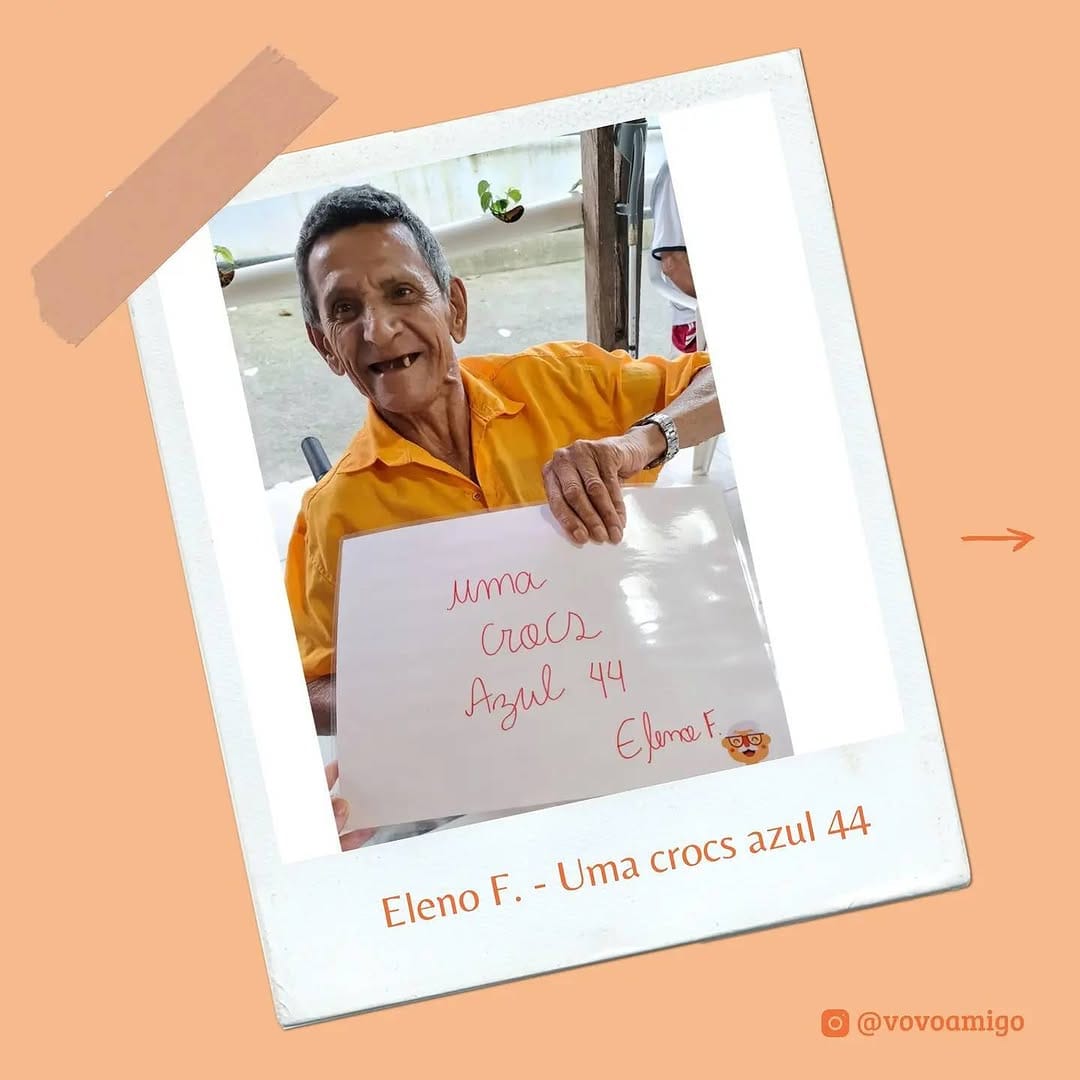 uma
crocs
Azul 44
Eleno F.
Eleno F. - Uma crocs azul 44
@vovoamigo